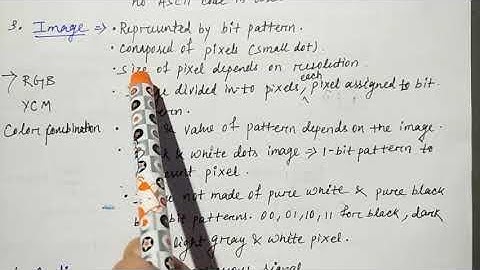 no ASCII code in
3. Image ⇒ • Represented by bit pattern.
• composed of pixels (small dot).
• size of pixel depends on resolution.
divided in to pixels, each pixel assigned to bit
→ RGB
YCM
Color Combination
tern.
& value of pattern depends on the image.
& white dots image ⇒ 1-bit pattern to
pixel.
not made of pure white & pure black
bit patterns. 00, 01, 10, 11 for black, dark
light gray & white pixel.
signal